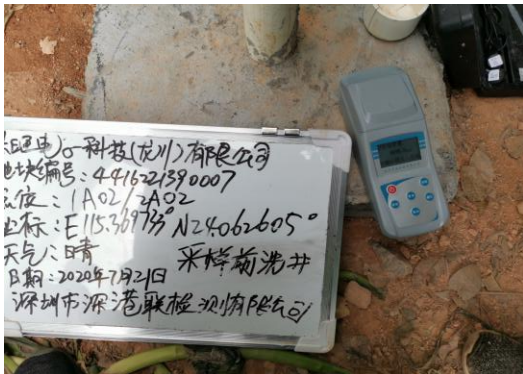 电子科技(龙川)有限公司
地块编号:4416221390007
点位:1A02/2A02
坐标:E115.369733° N24.062605°
天气:晴
采样前洗井
日期:2020年7月21日
深圳市深港联检测有限公司